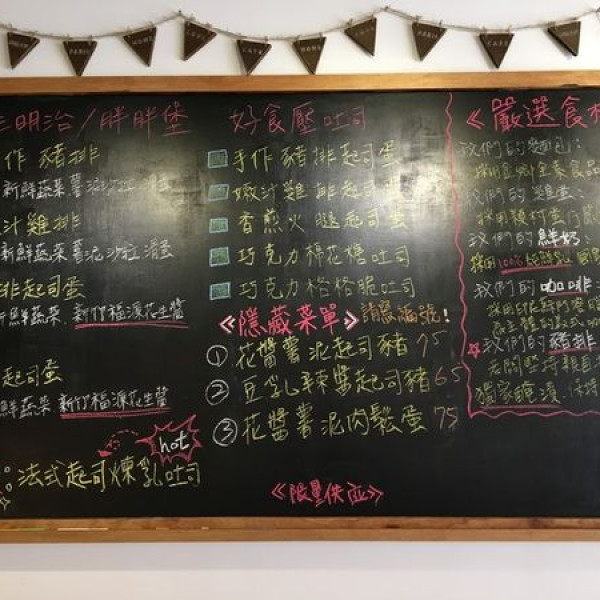 三明治/胖胖堡
作 豬排
新鮮蔬菜 薯泥沙拉 滑蛋
汁雞排
新鮮蔬菜 薯泥沙拉 滑蛋
排起司蛋
鮮蔬菜 新竹福源花生醬
起司蛋
鮮蔬菜 新竹福源花生醬
hot
法式起司煉乳吐司
好食壓吐司
手作豬排起司蛋
嫩汁雞排起司蛋
香煎火腿起司蛋
巧克力棉花糖吐司
巧克力格格脆吐司
《隱藏菜單》請唸編號!
① 花醬薯泥起司豬 75
② 豆乳辣醬起司豬 65
③ 花醬薯泥肉鬆蛋 75
《限量供应》
《嚴選食材
我們的麵包:
全素食品
我們的雞蛋:
我們的鮮奶
採用100%
我們的咖啡
我們的豬排
老闆堅持親自
獨家醃漬